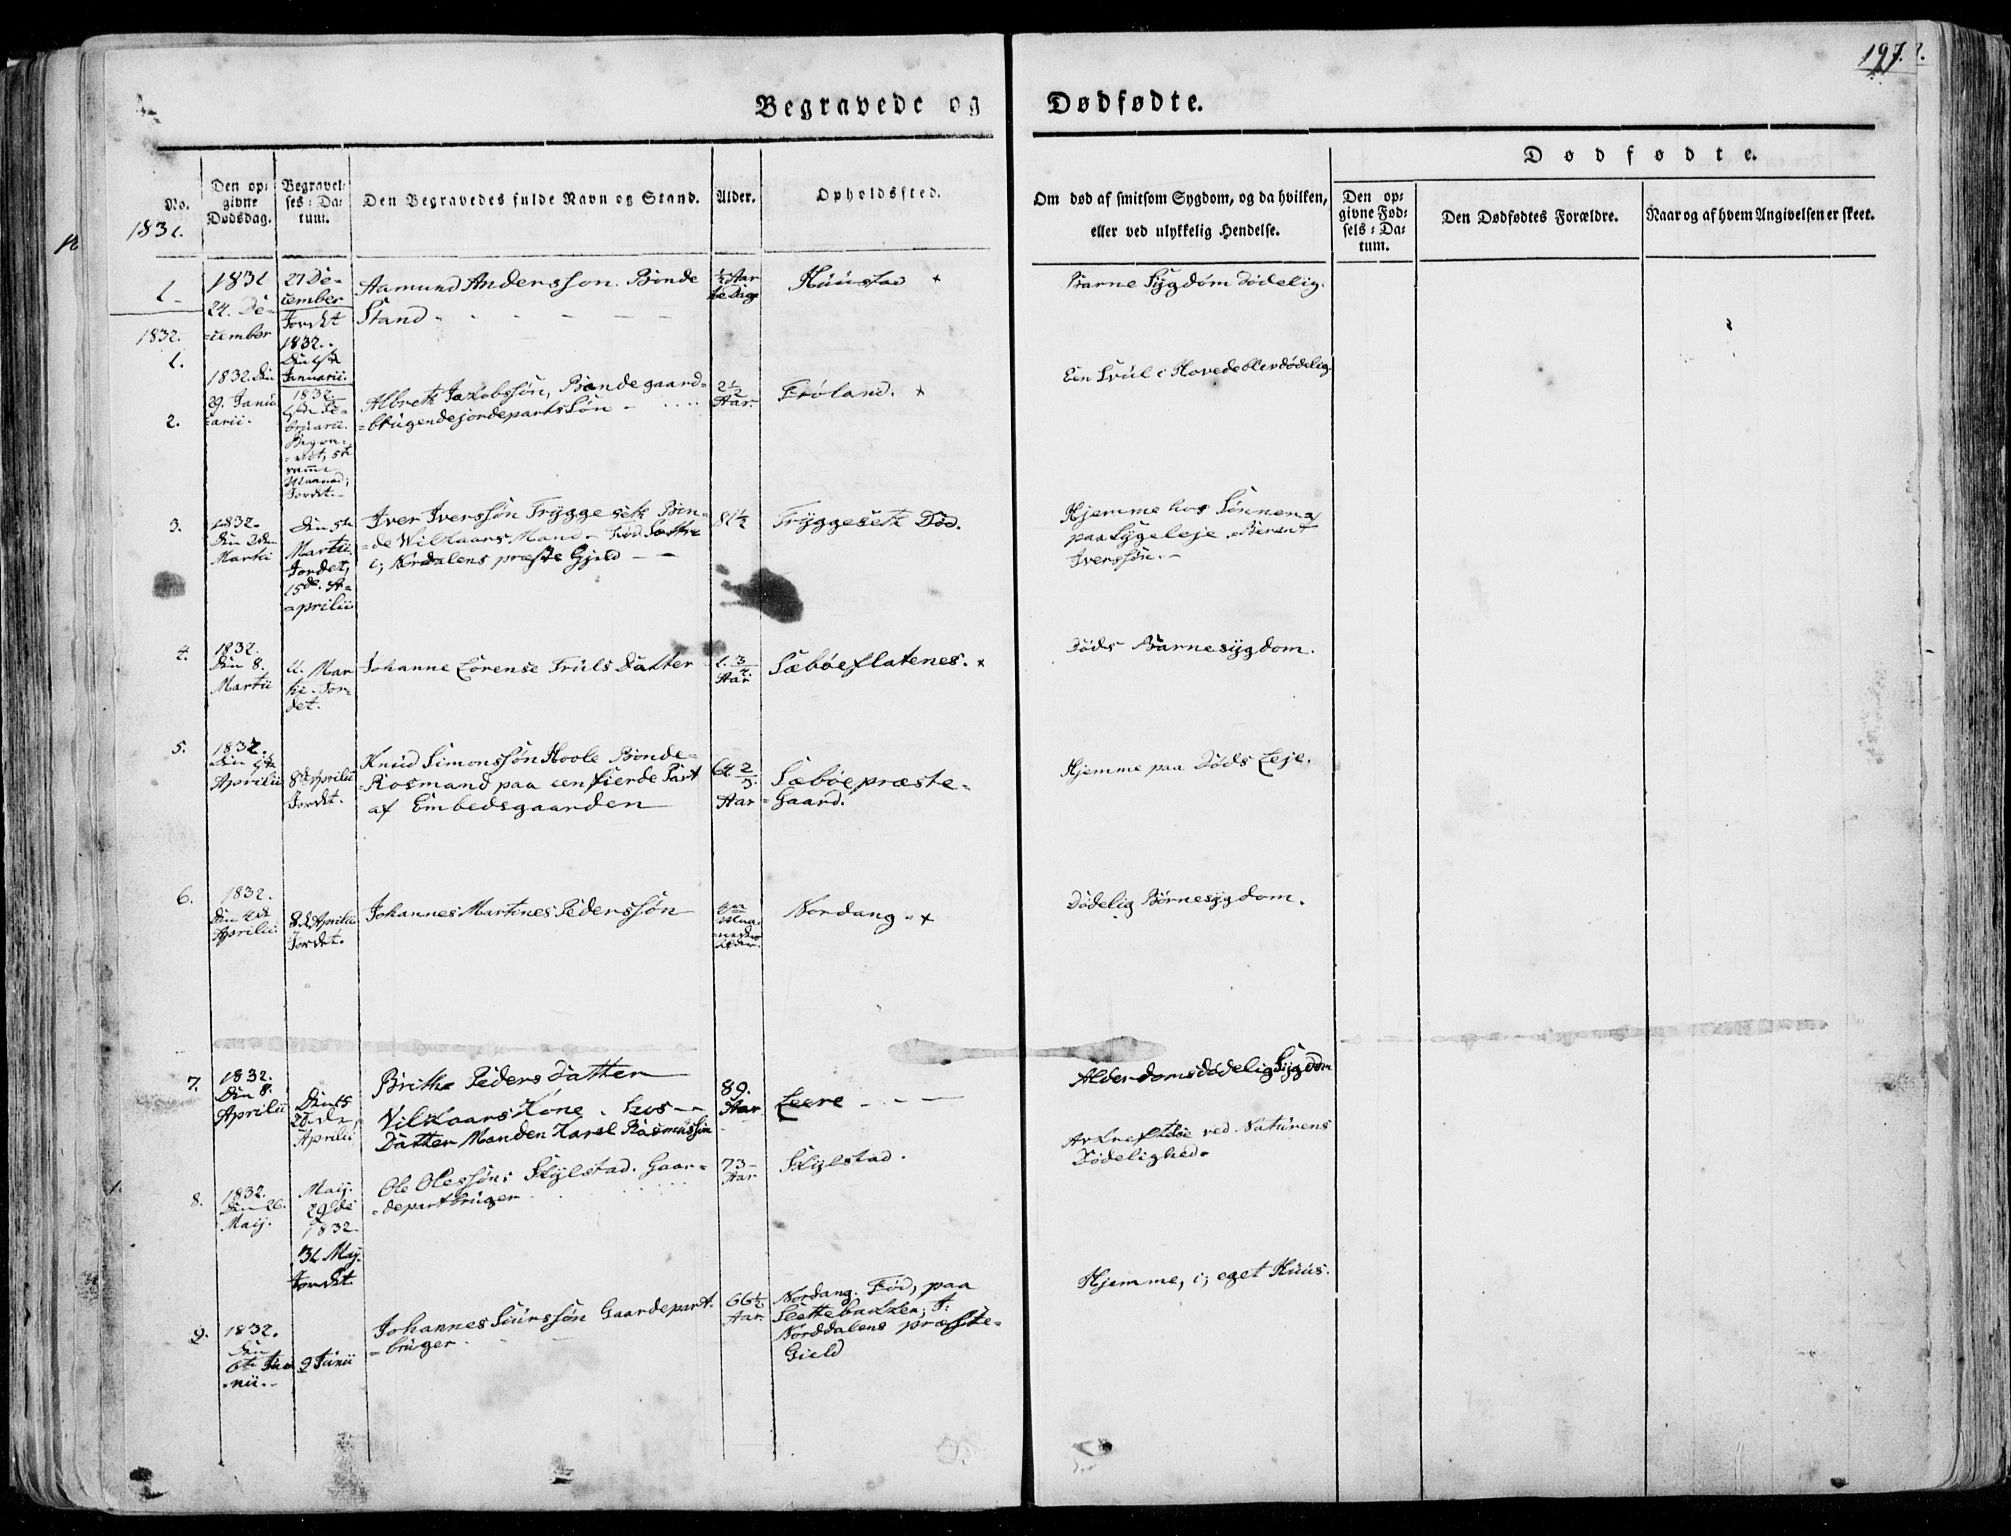 197.
Begravede og Dødfødte.
Dødfødte.
No.
Den op-
givne
Dødsdag.
Begravel-
ses-Da-
tum.
Den Begravedes fulde Navn og Stand.
Alder.
Opholdssted.
Om død af smitsom Sygdom, og da hvilken,
eller ved ulykkelig Hendelse.
Den op-
givne Fød-
sels-Da-
tum.
Den Dødfødtes Forældre.
Naar og af hvem Angivelsen er skeet.
1831.
1.
1831
24. De-
cember
27 De-
cember
Jordet
1832.
Januarii.
Aamund Andersson. Bonde
Stand
Aar
Huustad +
Barne Sygdom dødelig.
1832.
1.
2.
1832. Den
29. Janu
arii.
1832
bruarii.
5te
samme
Maaned,
Jordet.
Albreth Jacobssøn, Bondegaard-
-brugendejordeparts Søn
2 1/2
Aar.
Frøland. +
Een Svul i Hovedeblevdødelig.
3.
1832.
Den 2den
Martii
Den 5te
Martii
Jordet,
15de A-
-prilii
Iver Iverssøn Tryggeseth Bon-
-de Vilkaars Mand - Fød Sættre
i; Nordalens præste Gjeld
81 1/2
Tryggeseth Død.
Hjemme hos Sønnen
paa Sygeleje Berent
Iverssøn.
4.
1832.
Den 8.
Martii
11. Mar
tii. Jor-
det.
Johanne Lorense Truls Datter
1. 3/4
Aar
Sæbøeflatenes. +
Døds Barnesygdom.
5.
1832.
Den
Aprilii
8de Aprilii
Jordet.
Knud Simonssøn Hoole Bonde-
-Kosmand paa een fierde Part
af Embedsgaarden
64 2/3.
Aar
Sæbøepræste-
-Gaard.
Hjemme paa Døds Leje.
6.
1832.
Aprilii
8de Aprilii
Jordet.
Johannes Martines Pederssøn
Maa-
Nordang. +
Dødelig Børnesygdom.
7.
1832.
Den 8.
Aprilii
Den 15
Aprilii
Brithe Peders Datter
Vilkaars Kone. hos
Datter Manden Karel Rasmussøn
89.
Aar
Leere
Alderdomsdødelig Sygdom
8.
1832.
Den 26.
Maij.
Maij.
29de
1832.
31 Maij.
Jordet.
Ole Olessøn; Skylstad. Gaar-
-departbruger
73
Aar
Skylstad.
Avkreftelse ved Naturens
Dødelighed.
9.
1832.
Den
6te Ju-
-nii.
9 Junii
Johannes Siurssøn Gaardepart.
-bruger
66 1/2
Aar.
Nordang. Fød, paa
Slettebakken; I:
Norddalens præste-
Gield
Hjemme, i; eget Huus.